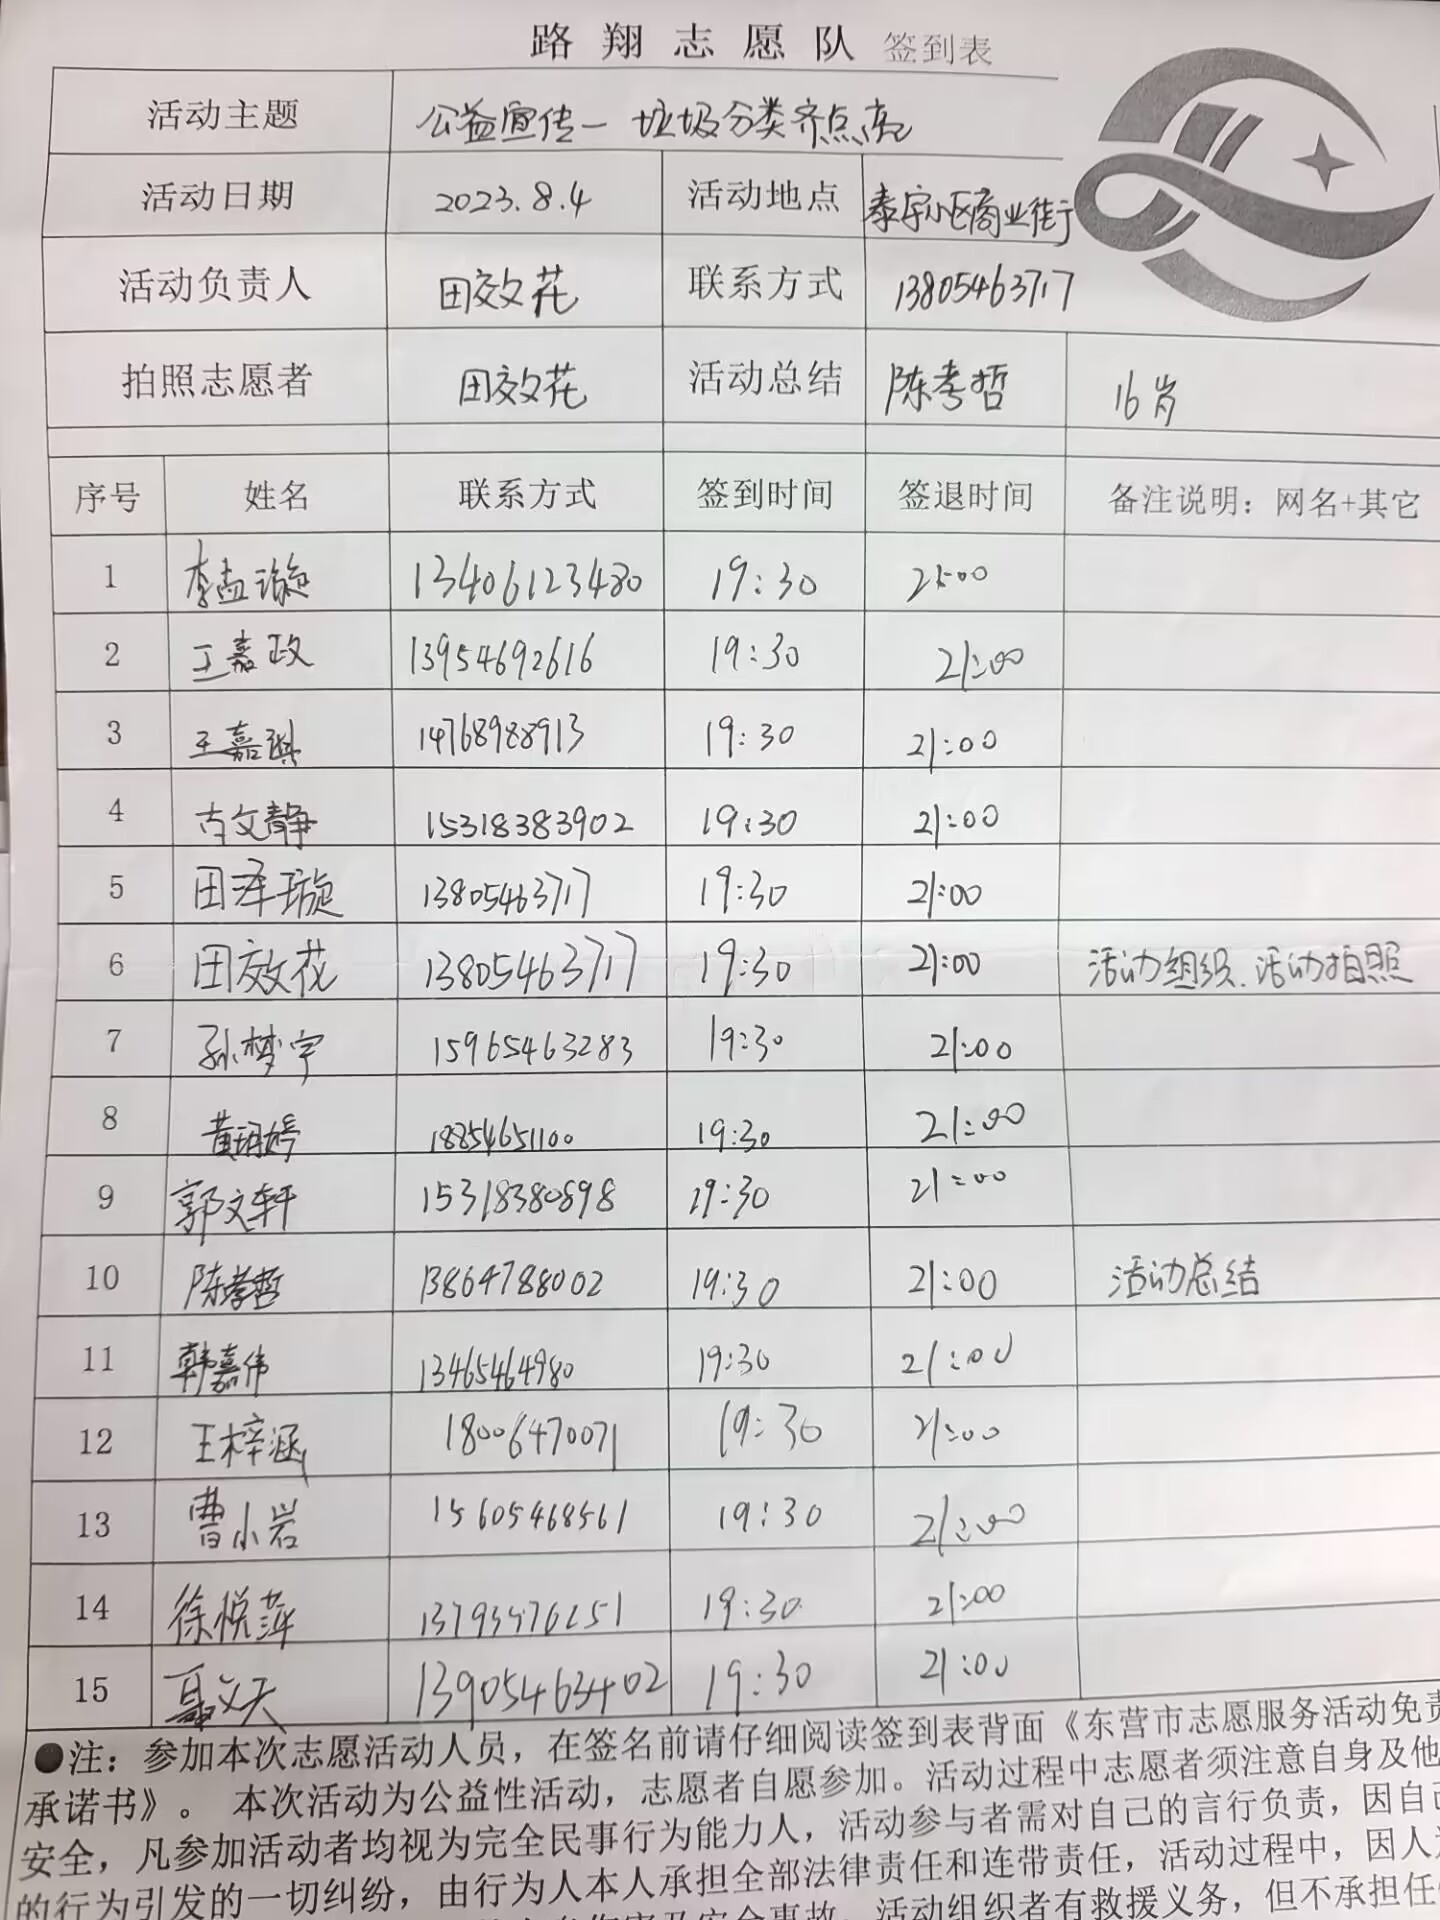 路翔志愿队 签到表
活动主题 公益宣传一垃圾分类齐点亮
活动日期 2023.8.4 活动地点 泰宇小区商业街
活动负责人 田效花 联系方式 13805463717
拍照志愿者 田效花 活动总结 陈孝哲 16岁
序号 姓名 联系方式 签到时间 签退时间 备注说明：网名+其它
1 李孟璇 13406123480 19:30 21:00
2 王嘉政 13954692616 19:30 21:00
3 王嘉琪 14768988913 19:30 21:00
4 古文静 15318383902 19:30 21:00
5 田泽璇 13805463717 19:30 21:00
6 田效花 13805463717 19:30 21:00 活动组织、活动拍照
7 孙梦宇 15965463283 19:30 21:00
8 黄玥婷 18854651100 19:30 21:00
9 郭文轩 15318380898 19:30 21:00
10 陈孝哲 13864788002 19:30 21:00 活动总结
11 韩嘉伟 13465464980 19:30 21:00
12 王梓涵 18006470071 19:30 21:00
13 曹小岩 15605468561 19:30 21:00
14 徐悦萍 19:30 21:00
15 聂文天 13905463402 19:30 21:00
●注：参加本次志愿活动人员，在签名前请仔细阅读签到表背面《东营市志愿服务活动免责
承诺书》。 本次活动为公益性活动，志愿者自愿参加。活动过程中志愿者须注意自身及他
安全，凡参加活动者均视为完全民事行为能力人，活动参与者需对自己的言行负责，因自己
的行为引发的一切纠纷，由行为人本人承担全部法律责任和连带责任，活动过程中，因人
安全事故，活动组织者有救援义务，但不承担任